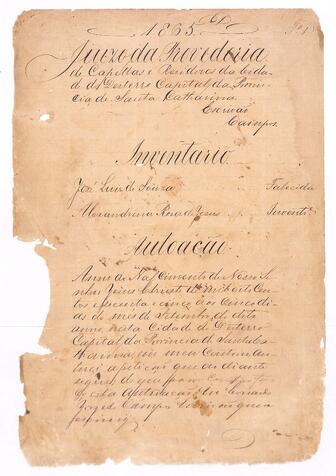 1865
Juizo da Provedoria
de Capellas e Residuos da Cidad
do Desterro Capital da Provin
cia de Santa Catharina.
Escrivão
Campos
Inventario
José Luiz de Souza Falecido
Alexandrina Rosa de Jesus Invent.
Autoação
Anno do Nascimento de Nosso Se
nhor Jesus Christo de mil oito Cen
tos e sessenta e cinco aos cinco di
as do mes de Setembro do dito
anno, nesta Cidade do Desterro
Capital da Provincia de Santa Ca
tharina, em meu Cartorio au
tuei a petição que ao diante
segue de que fiz
esta Autuação Eu Leonardo
Jorge de Campos Escrivão que o